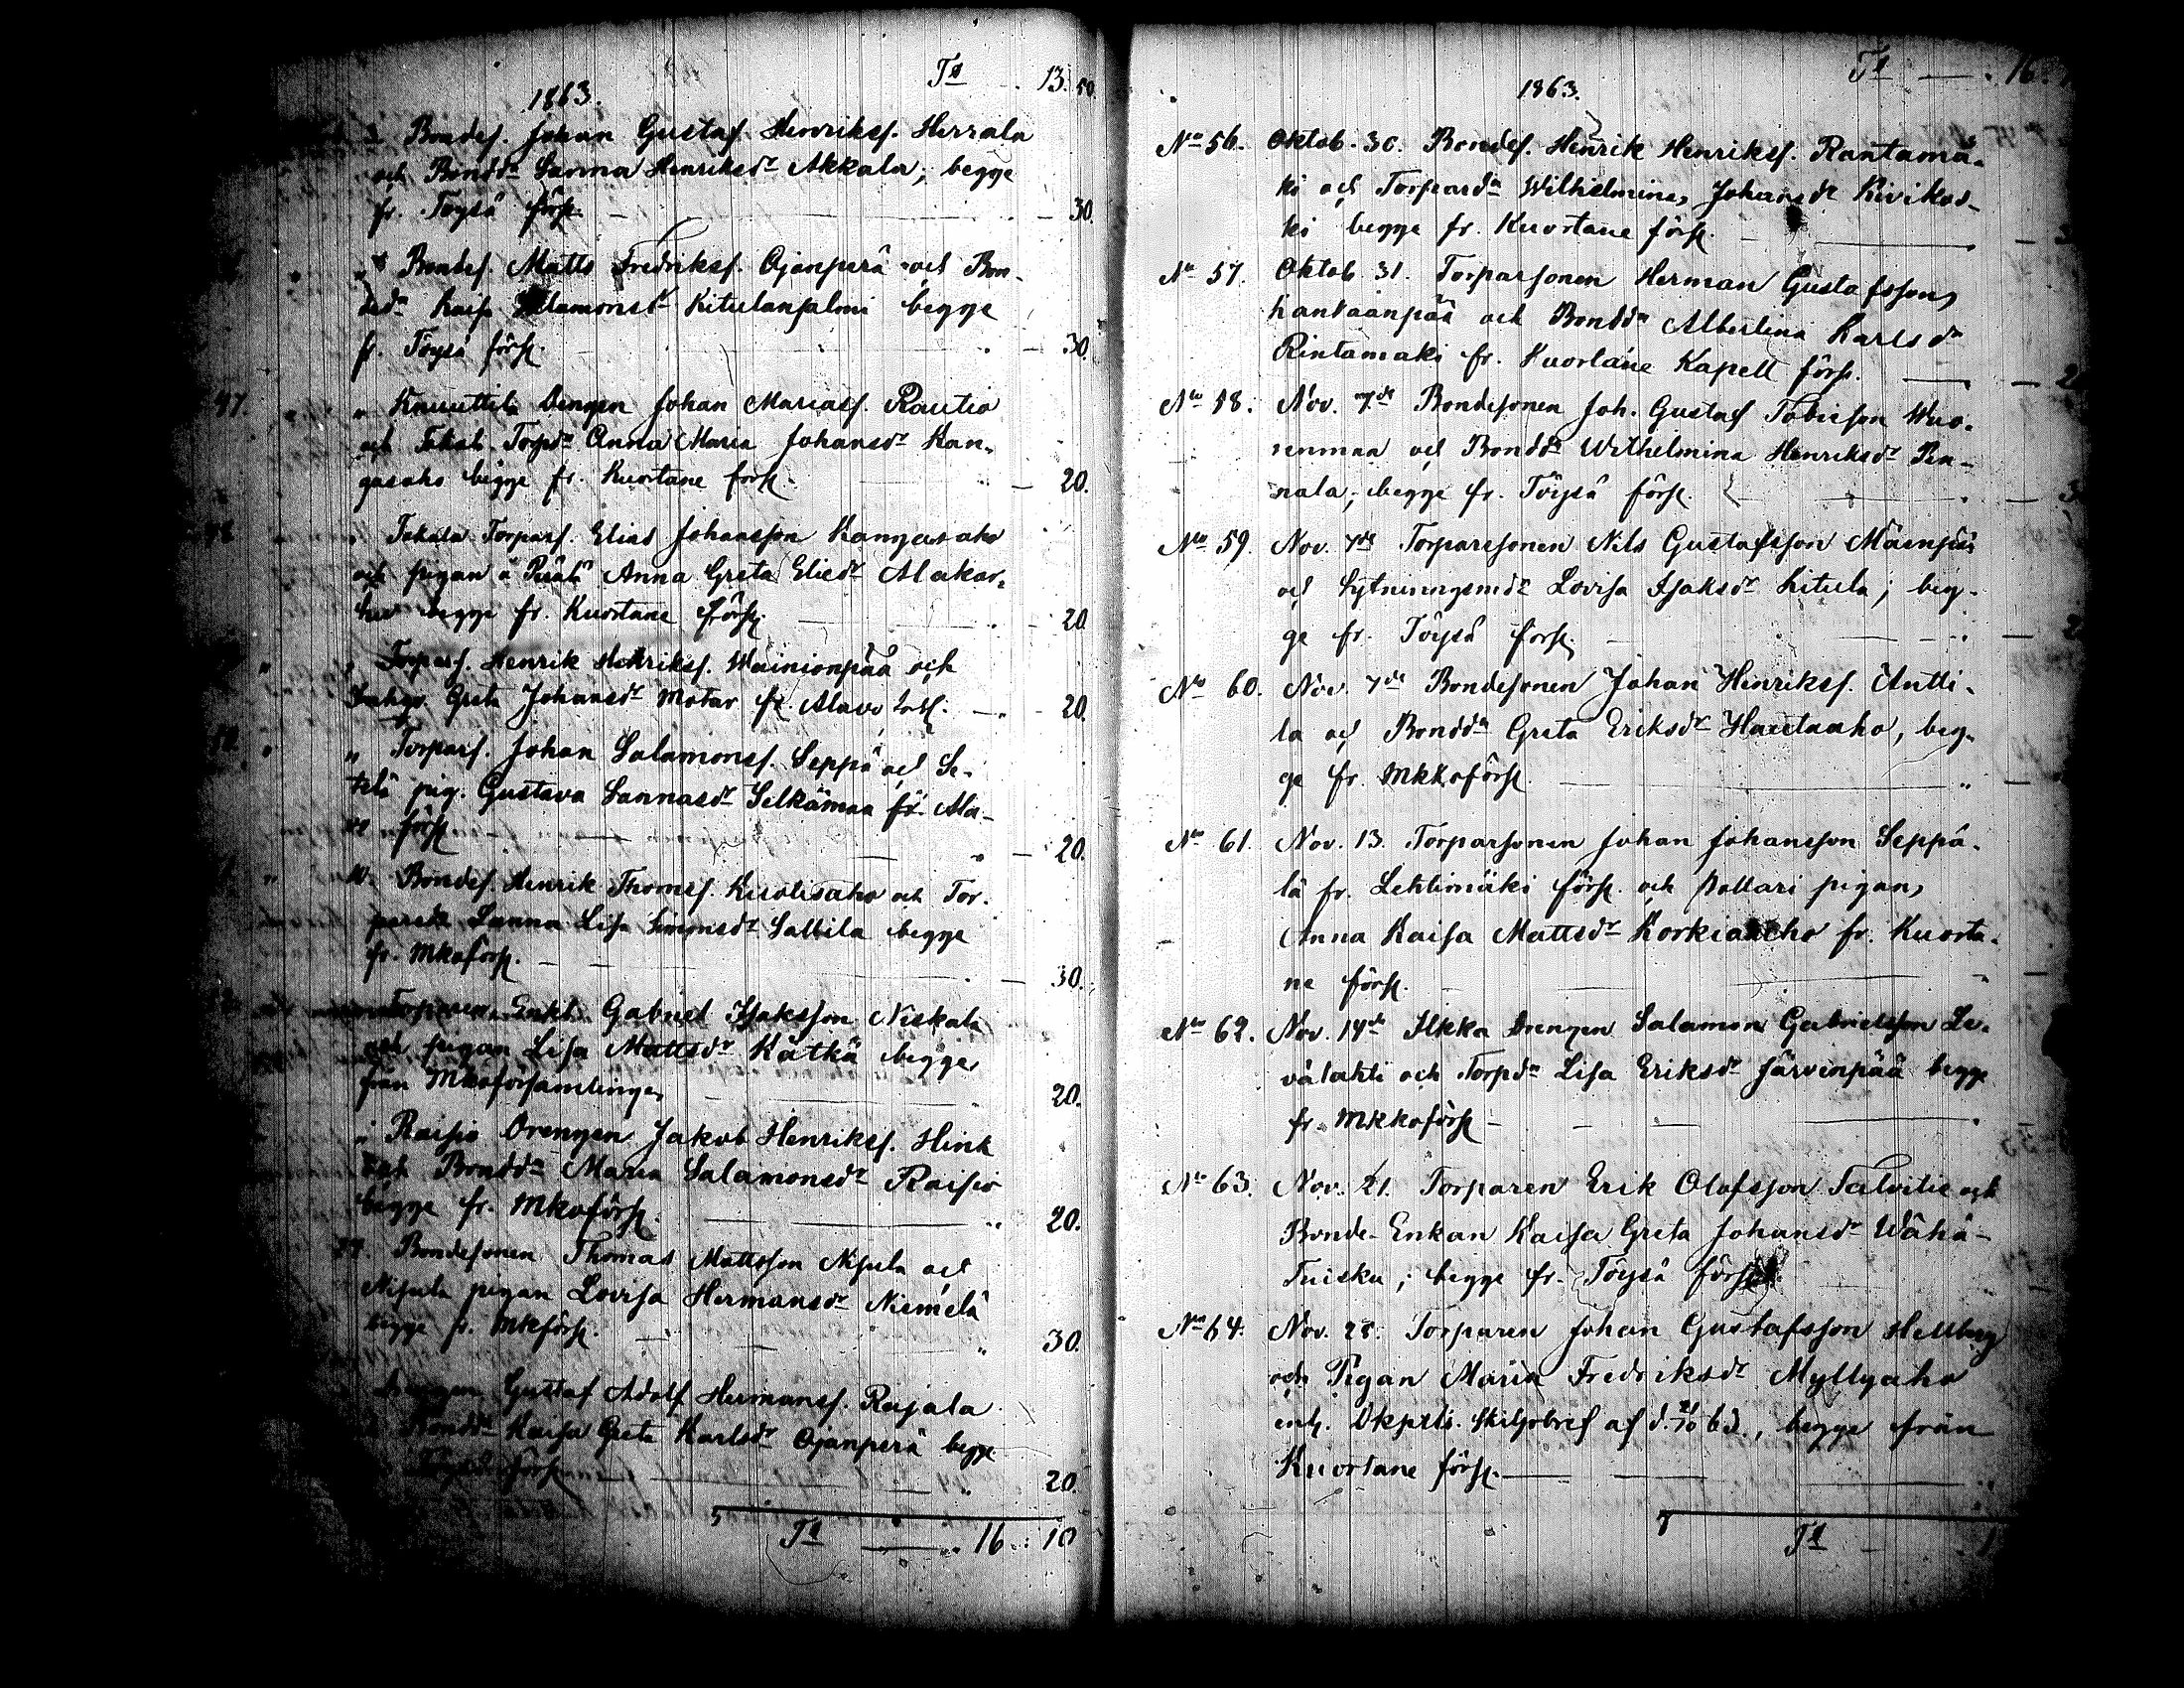 1863. Ta 13. 50.
3 Bondes. Johan Gustaf Henrikss. Herrala
och Bondda Sanna Henriksdr Akkala, begge
fr. Töysä förs. 30.
" Bondes. Matts Fredrikss. Ojanperä och Bon-
deda Kaisa Salamonsdr Kitulanpalmi begge
fr. Töysä förs. 30.
47. " Knuuttila Drengen Johan Mariass. Rautio
och Torpda Anna Maria Johansdr Kan-
gasaho begge fr. Kuortane förs. 20.
48 " Tokala Torpars. Elias Johansson Kangasaho
och pigan å Perälä Anna Greta Eliedr Alakar-
hu begge fr. Kuortane förs. 20
" Torpars. Henrik Henrikss. Wainionpää och
Greta Johansdr Motar fr. Alavo förs. 20.
50 " Torpars. Johan Salamonss. Seppä och Se-
pig. Gustava Sannasdr Selkämaa fr. Ala-
vo förs. 20.
10. Bondes. Henrik Thomss. Kuolisaho och Tor-
pareda Sanna Lisa Simonsdr Sallila begge
fr. Mkoförs. 30.
Torparen Enkl. Gabriel Isaksson Niskala
och pigan Lisa Mattsdr Kätkä begge
från Mkoförsamlinge 20.
" Raisio Drengen Jakob Henrikss. Hink
och Bondda Maria Salamonsdr Raisio
begge fr. Mkoförs. 20.
24. Bondesonen Thomas Mattsson Nisula och
Nisula pigan Lovisa Hermansdr Niemelä
begge fr. Mkförs. 30.
Drengen Gustaf Adolf Hermanss. Rajala
Bondda Kaisa Greta Karlsdr Ojanperä begge
Töysä förs 20.
Ta 16 : 10
1863. Ta 16.
No 56. Oktob. 30. Bondes. Henrik Henrikss. Rantamä-
ki och Torparda Wilhelmina Johansdr Kivikos-
ki begge fr. Kuortane förs.
No 57. Oktob. 31. Torparsonen Herman Gustafsson
Kankaanpää och Bondda Albertina Karlsda
Rintamäki fr. Kuortane Kapell förs.
No 58. Nov. 7de Bondesonen Joh. Gustaf Tobisson Wuo-
renmaa och Bondda Wilhelmina Henriksdr Pen-
nala, begge fr. Töysä förs.
No 59. Nov. 7de Torparesonen Nils Gustafsson Mäenpää
och Sytningsmda Lovisa Isaksdr Kitula; beg-
ge fr. Töysä förs.
No 60. Nov. 7de Bondesonen Johan Henrikss. Antti-
la och Bondda Greta Eriksdr Hautaaho, beg-
ge fr. Mkkoförs.
No 61. Nov. 13. Torparsonen Johan Johansson Seppä-
lä fr. Lehtimäki förs. och Pollari pigan
Anna Kaisa Mattsdr Korkiaaho fr. Kuorta-
ne förs.
No 62. Nov. 14de Ilkka Drengen Salamon Gabrielsson Le-
välahti och Torpda Lisa Eriksdr Järvinpää begge
fr. Mkkoförs
No 63. Nov. 21. Torparen Erik Olofsson Talvitie och
Bonde-Enkan Kaisa Greta Johansdr Wähä-
Tuisku; begge fr. Töysä förs.
No 64. Nov. 28. Torparen Johan Gustafsson Hellberg
och Pigan Maria Fredriksdr Myllyaho
enl. Dkptls. Skiljobref af d. 63., begge från
Kuortane förs.
Ta